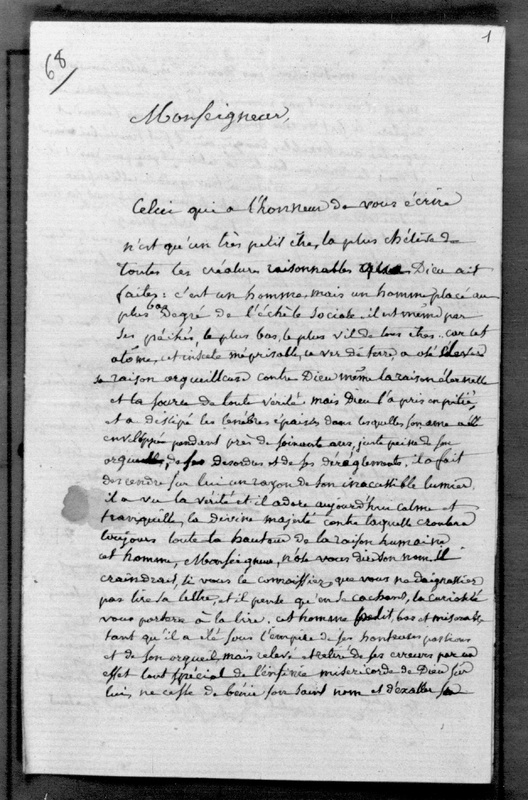 68
1
Monseigneur,
Celui qui a l'honneur de vous écrire
n'est qu'un très petit être, la plus chétive de
toutes les créatures raisonnables que Dieu ait
faites: c'est un homme, mais un homme placé au
plus bas degré de l'échèle sociale. il est même par
ses péchés, le plus bas, le plus vil de tous êtres.. car cet
atôme, cet insecte méprisable, ce ver de terre, a osé élever
sa raison orgueilleuse contre Dieu même la raison éternelle
et la source de toute vérité mais Dieu l'a pris en pitié,
et a dissipé les ténèbres épaisses dans lesquelles son ame a été
enveloppée pendant près de soixante ans, juste peine de son
orgueil, de ses desordres et de ses déréglements, il a fait
descendre sur lui un rayon de son inaccessible lumière
il a vu la vérité et il adore aujourd'hui calme et
tranquille, la divine majesté contre laquelle croulera
toujours toute la hauteur de la raison humaine
cet homme, Monseigneur, n'ose vous dire son nom. Il
craindrait, si vous le connaissiez, que vous ne daignassiez
pas lire sa lettre, et il pense qu'en se cachant, la curiosité
vous portera à la lire. cet homme petit, bas et misérable
tant qu'il a été sous l'empire de ses honteuses passions
et de son orgueil, mais relevé et retiré de ses erreurs par un
effet tout spécial de l'infinie misericorde de Dieu sur
lui, ne cesse de bénir son saint nom et d'exalter sa